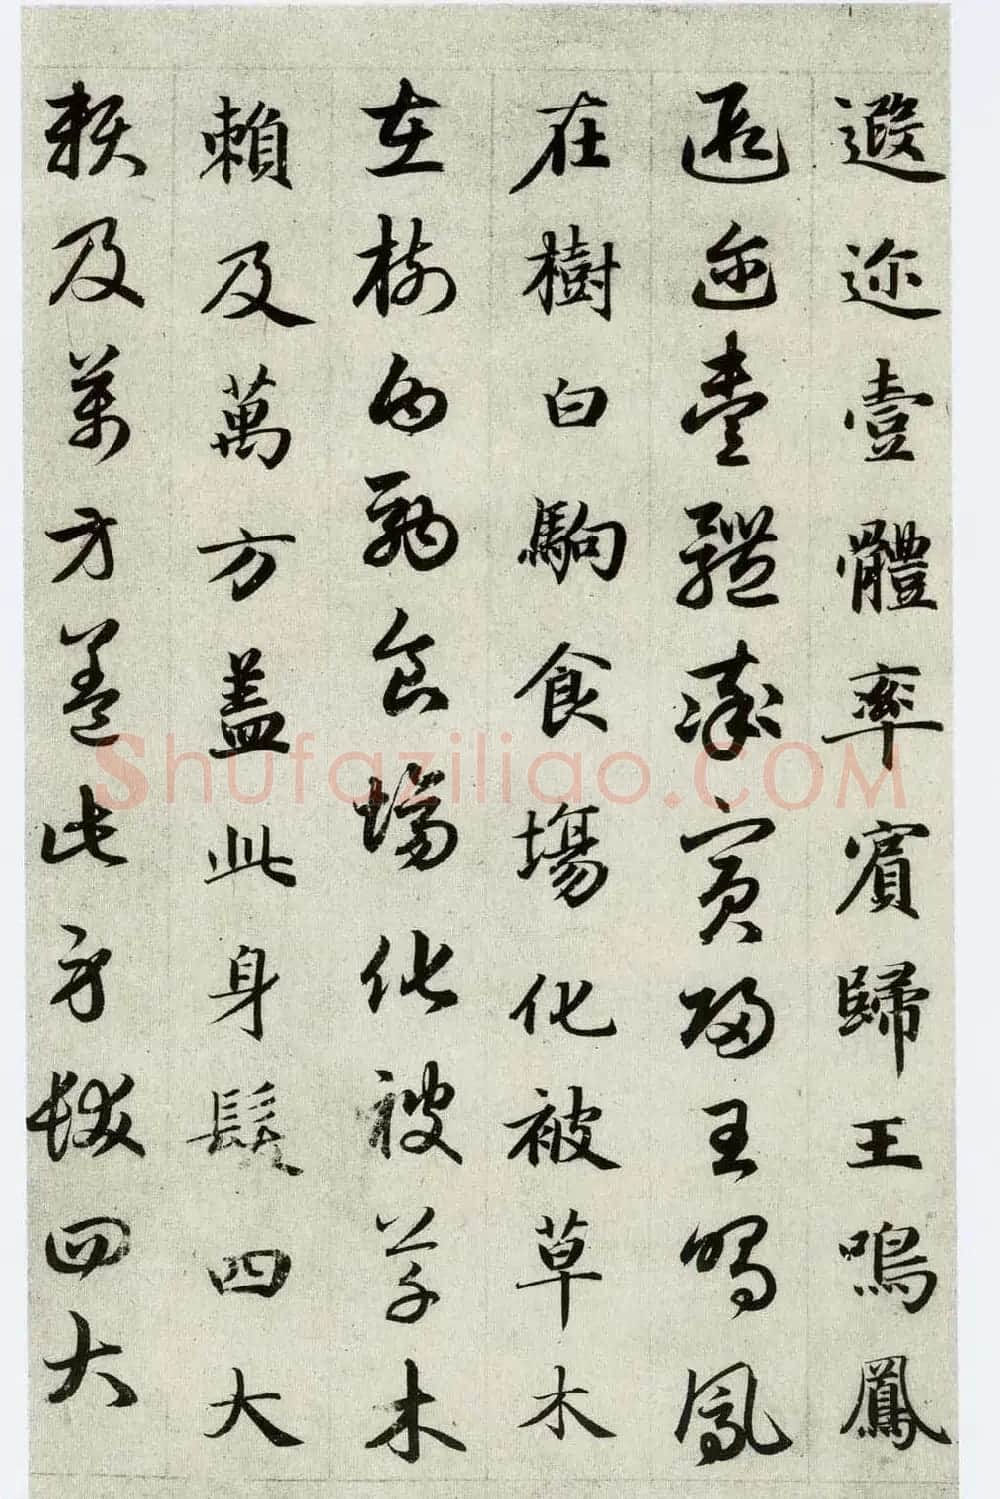 遐迩壹體率賓歸王鳴鳳
遐迩壹體率賓歸王鳴鳳
在樹白駒食場化被草木
在樹白駒食場化被草木
賴及萬方盖此身髮四大
賴及萬方盖此身髮四大
Shufaziliao.COM